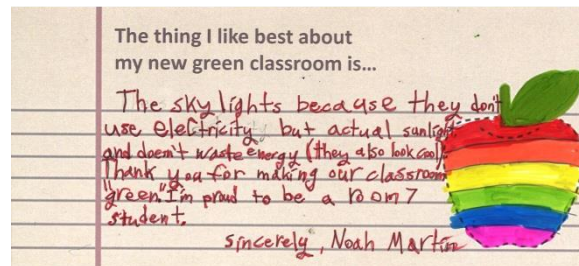 The thing I like best about
my new green classroom is...
The sky lights because they don't
use electricity but actual sunlight
and doesn't waste energy (they also look cool).
Thank you for making our classroom
"green." I'm proud to be a room 7
student.
sincerely, Noah Martin